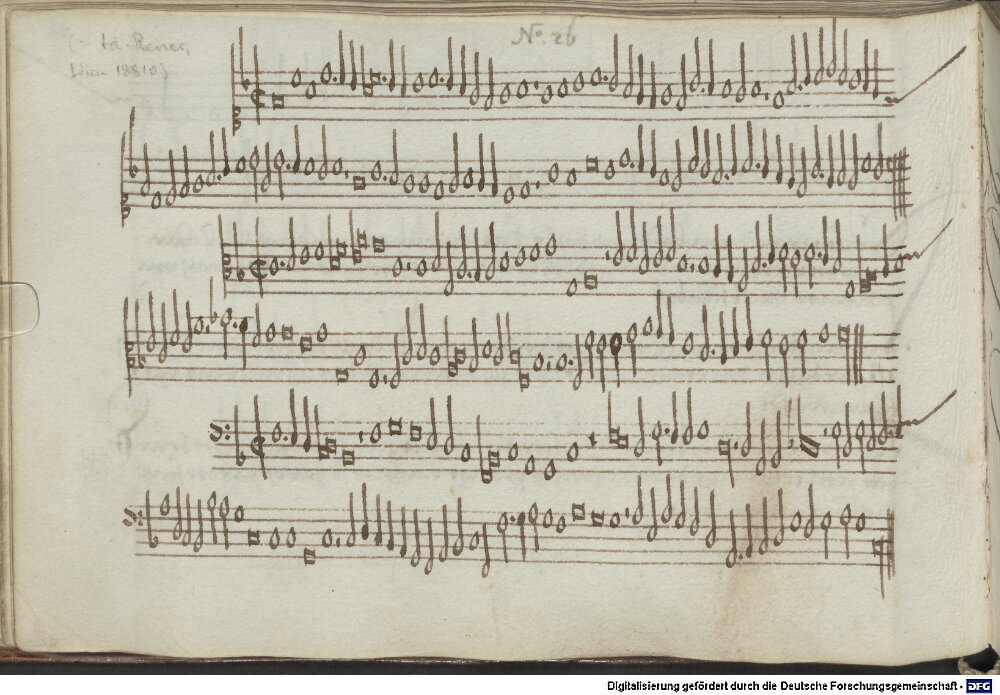 No. 26
(= Ad. Rener,
Wien 18810)
Digitalisierung gefördert durch die Deutsche Forschungsgemeinschaft - DFG